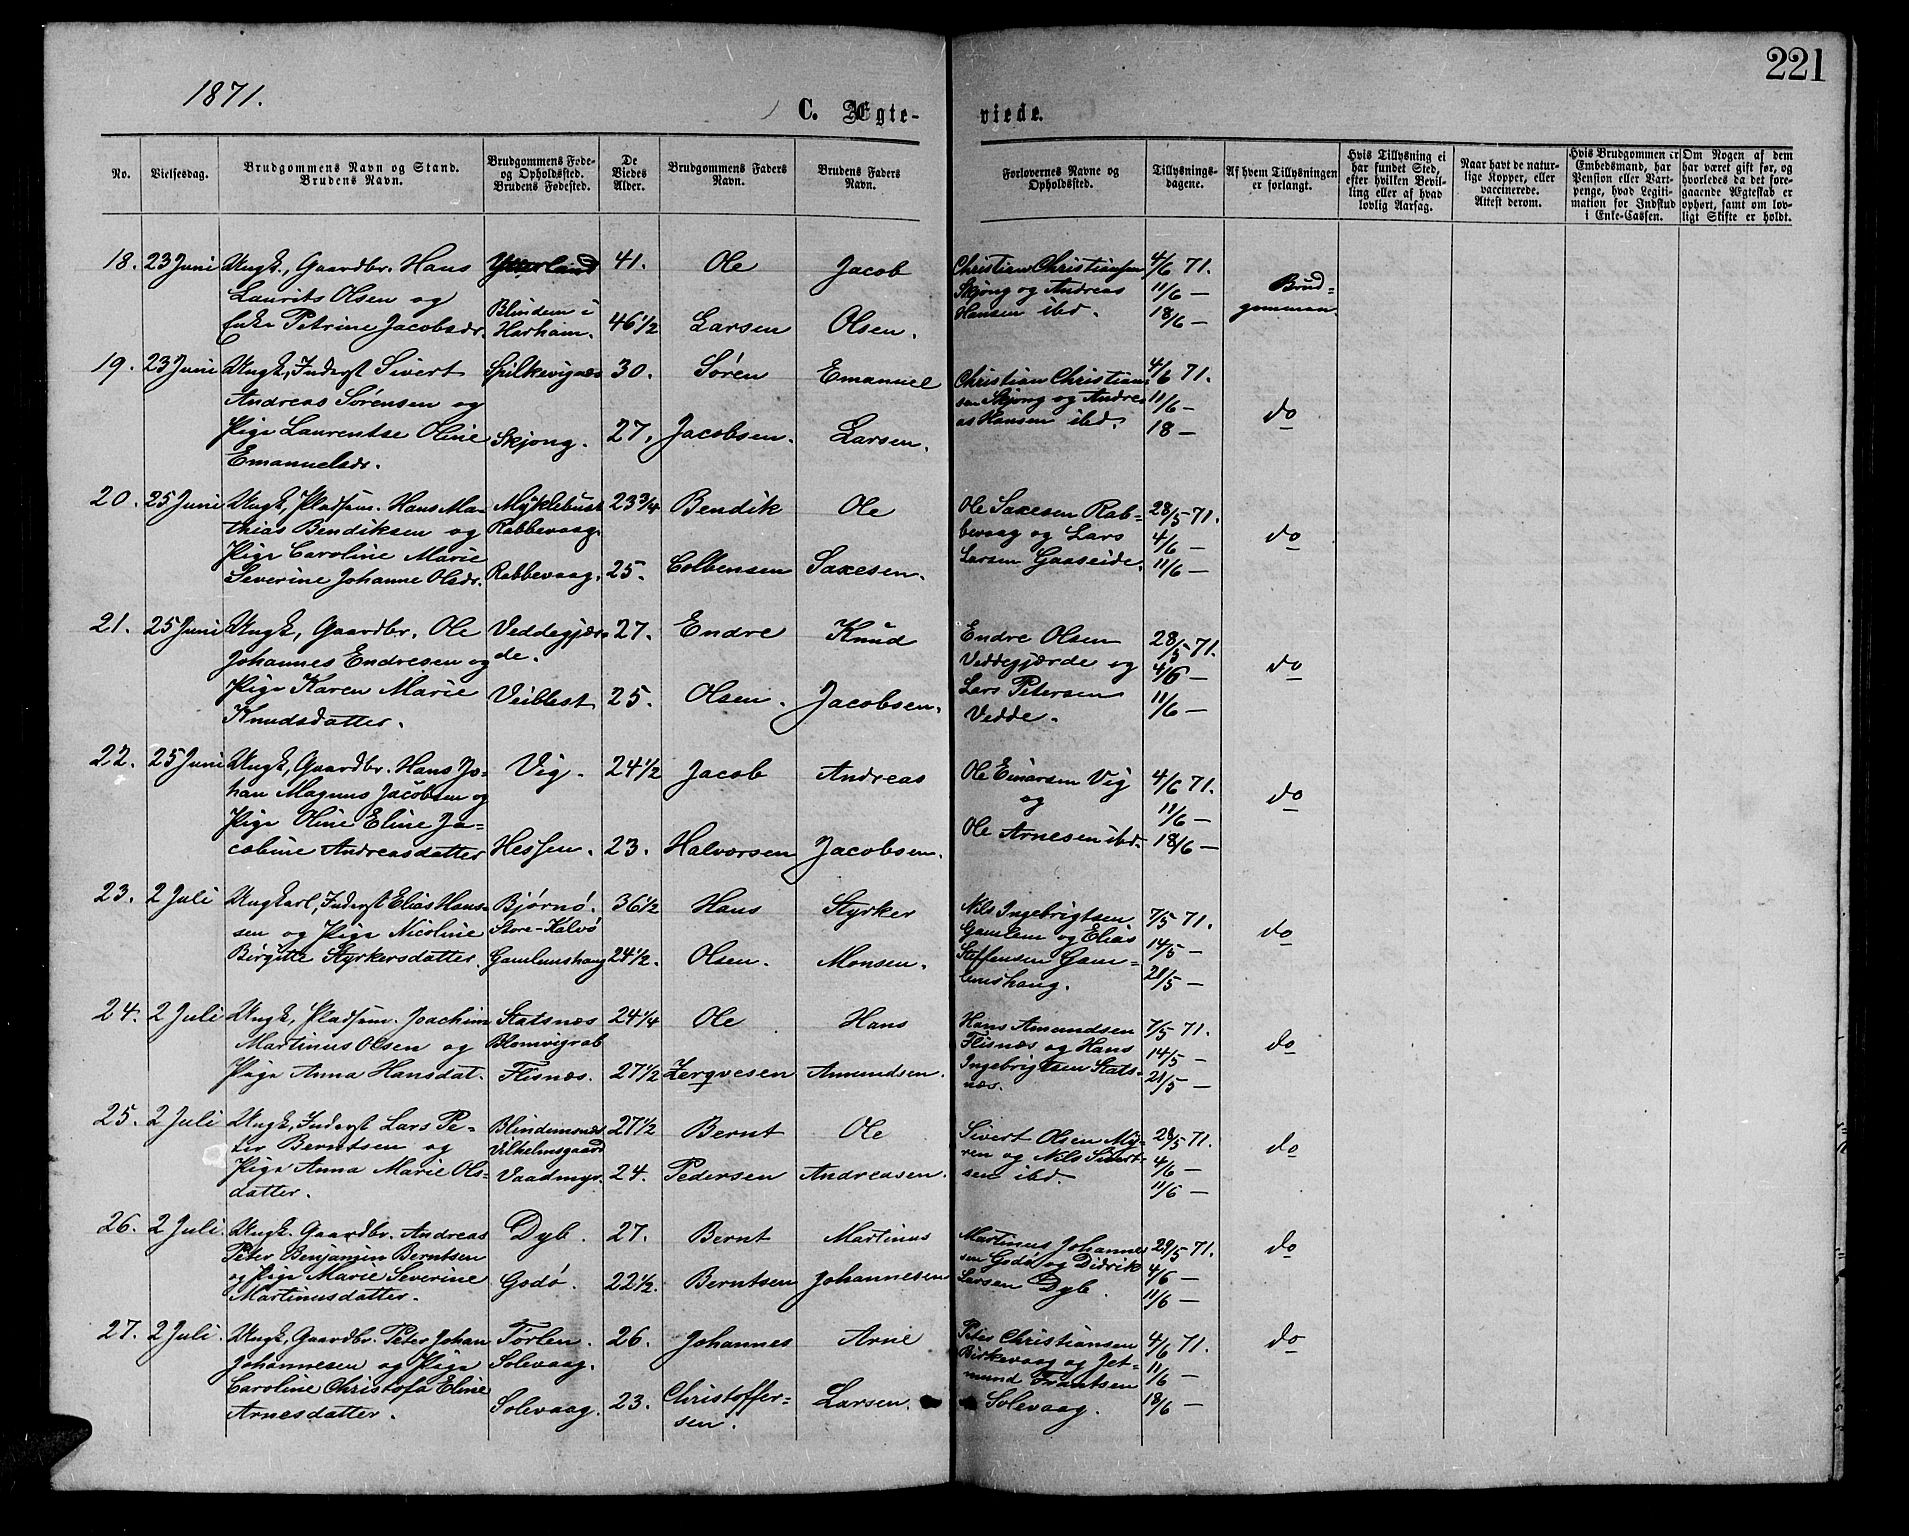 221
1871.
C. Ægte-
viede.
No.
Vielsesdag.
Brudgommens Navn og Stand.
Brudens Navn.
Brudgommens Føde-
og Opholdssted.
Brudens Fødested.
De
Viedes
Alder.
Brudgommens Faders
Navn.
Brudens Faders
Navn.
Forlovernes Navne og
Opholdssted.
Tillysnings-
dagene.
Af hvem Tillysningen
er forlangt.
Hvis Tillysning ei
har fundet Sted,
efter hvilken Bevil-
ling eller af hvad
lovlig Aarsag.
Naar havt de natur-
lige Kopper, eller
vaccinerede.
Attest derom.
Hvis Brudgommen er
Embedsmand, har
Pension eller Vart-
penge, hvad Legiti-
mation for Indskud
i Enke-Cassen.
Om Nogen af dem
har været gift før, og
hvorledes da det fore-
gaaende Ægteskab er
ophørt, samt om lov-
ligt Skifte er holdt.
18. 23 Juni Ungk., Gaardbr. Hans
Laurits Olsen og
Enke Petrine Jacobsdr.
Blindem i
Harham.
41.
46 1/2
Ole
Larsen
Jacob
Olsen.
Christian Christiansen
Skjong og Andreas
Hansen ibd.
4/6 71.
11/6 —
18/6 —
Brud-
gommen.
19. 23 Juni Ungk, Inderst Sivert
Andreas Sørensen og
Pige Laurentse Oline
Emanuelsdr.
Spilkevignæs
Skjong.
30.
27.
Søren
Jacobsen.
Emanuel
Larsen.
Christian Christian-
sen Skjong og Andre-
as Hansen ibd.
4/6 71.
11/6 —
18 —
do
20. 25 Juni Ungk, Pladsm. Hans Ma-
thias Bendiksen og
Pige Caroline Marie
Severine Johanne Olsdr.
Myklebust
Rabbevaag.
Rabbevaag.
23 3/4
25.
Bendik
Colbensen
Ole
Saxesen.
Ole Saxesen Rab-
bevaag og Lars
Larsen Gaaseide.
28/5 71.
4/6 —
11/6 —
do
21. 25 Juni Ungk, Gaardbr. Ole
Johannes Endresen og
Pige Karen Marie
Knudsdatter.
Veddegjær-
de.
Veiblest
27.
25.
Endre
Olsen.
Knud
Jacobsen.
Endre Olsen
Veddegjærde og
Lars Petersen
Vedde.
28/5 71.
4/6 —
11/6 —
do
22. 25 Juni Ungk, Gaardbr. Hans Jo-
han Magnus Jacobsen og
Pige Oline Eline Ja-
cobine Andreasdatter
Vig.
Hessen.
24 1/2
23.
Jacob
Halvorsen
Andreas
Jacobsen.
Ole Einarsen Vig
og
Ole Arnesen ibd.
4/6 71.
11/6 —
18/6 —
do
23. 2 Juli Ungkarl, Inderst Elias Hans-
sen og Pige Nicoline
Birgitte Styrkersdatter.
Bjørnø.
Store-Kalvø
Gamlemshaug
36 1/2
24 1/2.
Hans
Olsen.
Styrker
Monsen.
Nils Ingebrigtsen
Gamlem og Elias
Steffensen Gam-
lemshaug.
7/5 71.
14/5 —
21/5 —
do
24. 2 Juli Ungk, Pladsm. Joachim
Martinus Olsen og
Pige Anna Hansdat.
Statsnæs
Blomvigrab
Flisnæs.
24 1/4
27 1/2
Ole
Zergvesen
Hans
Amundsen.
Hans Amundsen
Flisnæs og Hans
Ingebrigtsen Stats-
næs.
7/5 71.
14/5 —
21/5 —
do
25. 2 Juli Ungk, Inderst Lars Pe-
ter Berntsen og
Pige Anna Marie Ols-
datter.
Blindemsnæs
Vilhelmsgaard
Vaadmyr.
27 1/2
24.
Bernt
Pedersen
Ole
Andreasen.
Sivert Olsen My-
ren og Nils Sivert-
sen ibd.
28/5 71.
4/6 —
11/6 —
do
26. 2 Juli. Ungk. Gaardbr. Andreas
Peter Benjamin Berntsen
og Pige Marie Severine
Martinusdatter.
Dyb.
Godø.
27.
22 1/2.
Bernt
Berntsen
Martinus
Johannesen
Martinus Johanne-
sen Godø og Didrik
Larsen Dyb.
29/5 71.
4/6 —
11/6 —
do
27. 2 Juli. Ungk, Gaardbr. Peter Johan
Johannesen og Pige
Caroline Christofa Eline
Arnesdatter.
Tørlen.
Solevaag.
Solevaag.
26.
23.
Johannes
Christoffer-
sen.
Arne
Larsen.
Peter Christiansen
Birkevaag og Jet-
mund Frantsen
Solevaag.
4/6 71.
11/6 —
18/6 —
do